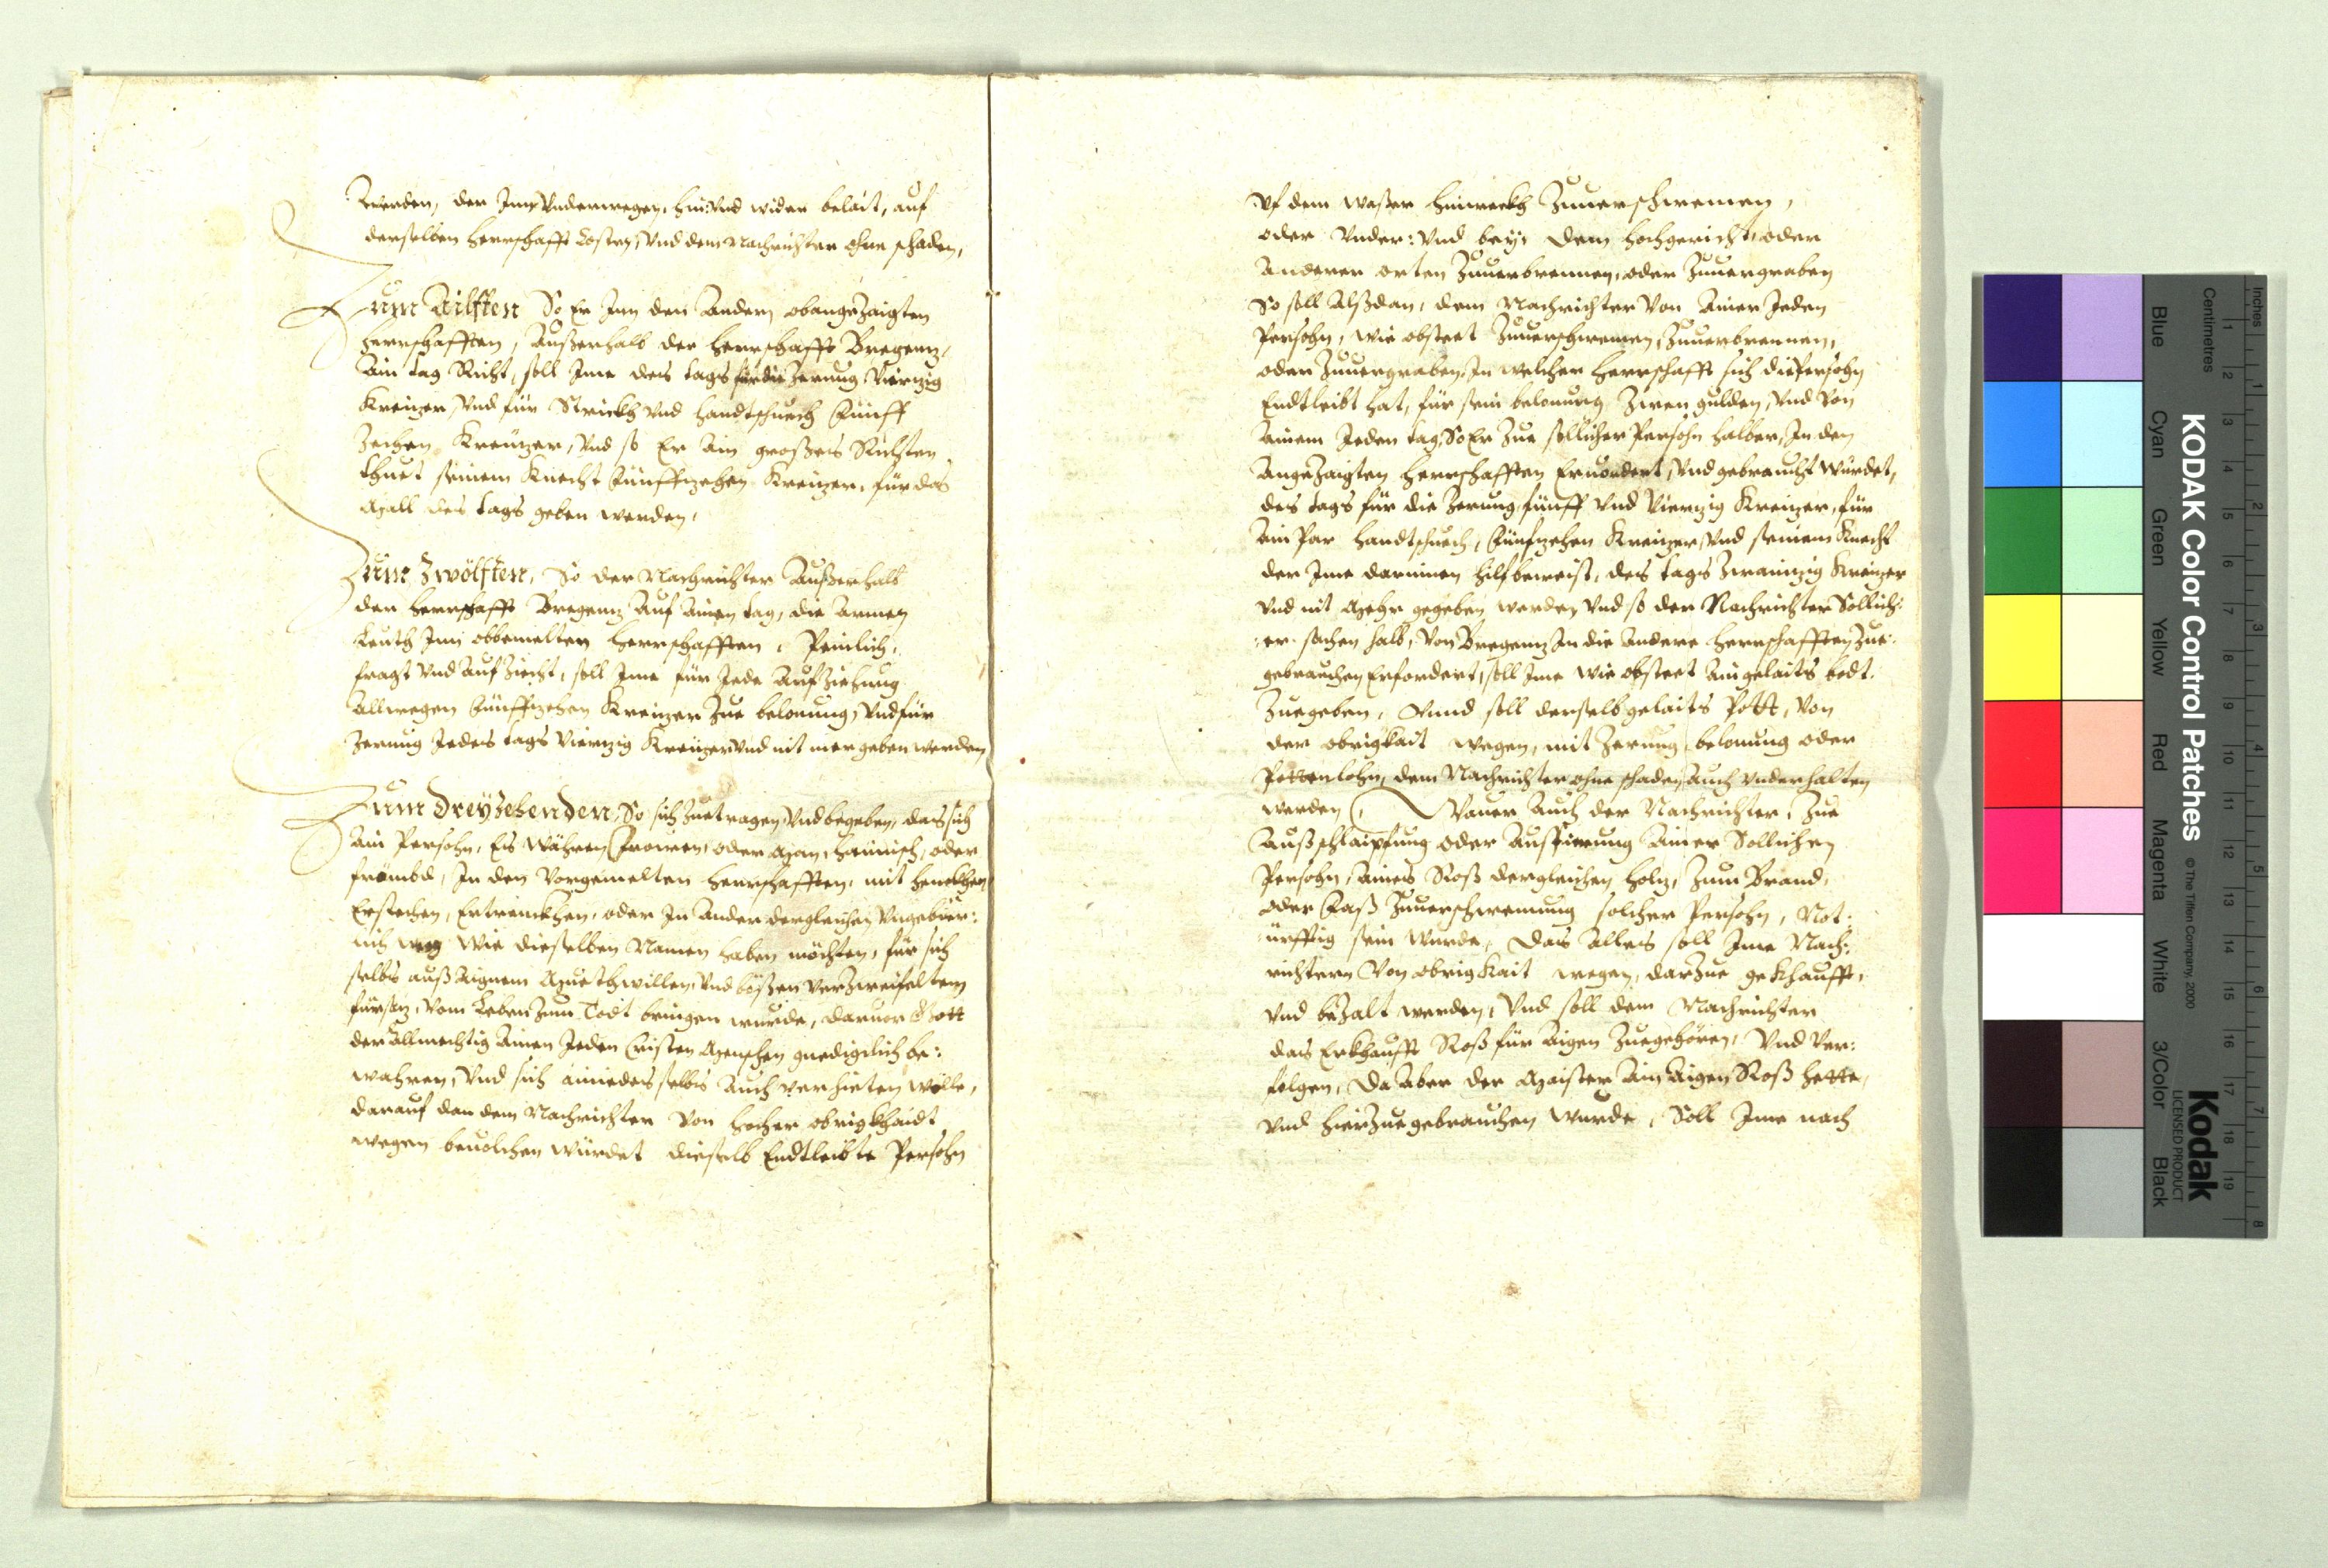 werden, der Ime Vnderwegen, hin: Vnd wider belait, auf
derselben Herrschafft Costen, Vnd dem Nachrichter ohne schaden,
Zum Ailfften So Er Inn den Andern obangezaigten
Herrschafften, Ausserhalb der Herrschafft Bregenz,
Ain tag Richt, soll Ime des tags für die Zerung Vierzig
Kreizer, Vnd für Strickh Vnd Handtschuech Fünff
Zechen Kreüzer, Vnd so Er Ain grossers Richten
thuet seinem Knecht Fünffzehen Kreizer, für das
Mall des tags geben werden,
Zum Zwölfften, So der Nachrichter Ausserhalb
der Herrschafft Bregenz Auf Ainen tag, die Armen
Leüth Inn obbemelten Herrschafften, Peinlich,
fragt Vnd Aufzücht, soll Ime für Jede Aufziehung
Allwegen Fünffzehen Kreizer Zue belonung, Vnd für
Zerung Jedes tags Vierzig Kreüzer Vnd nit mer geben werden
Zum Dreyzehenden, So sich Zuetragen, Vnd begeben, das sich
Ain Persohn, Es Währen Frowen, oder Man, haimisch, oder
frömbd, In den Vorgemelten Herrschafften, mit Henckhen
Erstechen, Ertrenckhen, oder In Ander dergleichen Vngebüer:
lich weg Wie dieselben Namen haben möchten, für sich
selbs auss Aignem Muethwillen, Vnd bössen Verzweifeltem
fürsaz, Vom Leben Zum Todt bringen wurde, daruor Gott
der Allmechtig Ainen Jeden Cristen Menschen gnedigclich be:
wahren, Vnd sich ainiedes selbs Auch verhieten wölle,
darauf dan dem Nachrichter Von hocher obrigkhaidt
wegen beuolchen würdet dieselb Endtleibte Persohn
Vf dem Wasser hinweckh Zuuerschwemen,
oder Vnder: Vnd bey, dem hochgericht, oder
Anderer orten Zuuerbrennen, oder Zuuergraben
So soll Alssdan, dem Nachrichter Von Ainer Jeden
Persohn, Wie obsteet Zuuerschwemen, Zuuerbrennen,
oder Zuuergraben, In welcher Herrschafft sich die Persohn
Endtleibt hat, für sein belonung Zwen gulden, Vnd Von
Ainem Jeden tag, So Er Zue söllicher Persohn halber, In den
Angezaigten Herrschafften Eruordert, Vnd gebraucht Würdet,
des tags für die Zerung, fünff Vnd Vierzig Kreizer, für
Ain Par Handtschuech, Fünfzehen Kreizer, Vnd seinem Knecht
der Ime darinnen hilf beweist, des tags Zwainzig Kreizer
Vnd nit Mehr gegeben werden, Vnd so der Nachrichter Sollich:
:er sachen halb, Von Bregenz In die Andere Herrschafften Zue:
gebrauchen Erfordert, soll Ime Wie obsteet Ain gelaits bodt.
Zuegeben, Vnnd soll derselb gelaits Pott, Von
der obrigkait wegen, mit Zerung, belonung oder
Pottenlohn, dem Nachrichter ohne schaden, Auch Vnderhalten
werden, Wauer Auch der Nachrichter, Zue
Aussschlaipfung oder Aussfierung Ainer Sollichen
Persohn, Aines Ross dergleichen Holz, Zum Brand,
oder Fass Zuuerschwemung solcher Persohn, Not:
ürfftig sein Wurde, Das Alles soll Ime Nach:
richtern Von obrigkait wegen, darzue gekhaufft,
Vnd bezalt werden, Vnd soll dem Nachrichter
das Erkhaufft Ross für Aigen Zuegehören, Vnd Ver:
folgen, Da Aber der Maister Ain Aigen Ross hette,
Vnd hierzue gebrauchen Wurde, Soll Ime nach
Inches
Centimetres
KODAK Color Control Patches
© The Tiffen Company, 2000
Kodak
LICENSED PRODUCT
Blue
Cyan
Green
Yellow
Red
Magenta
White
3/Color
Black